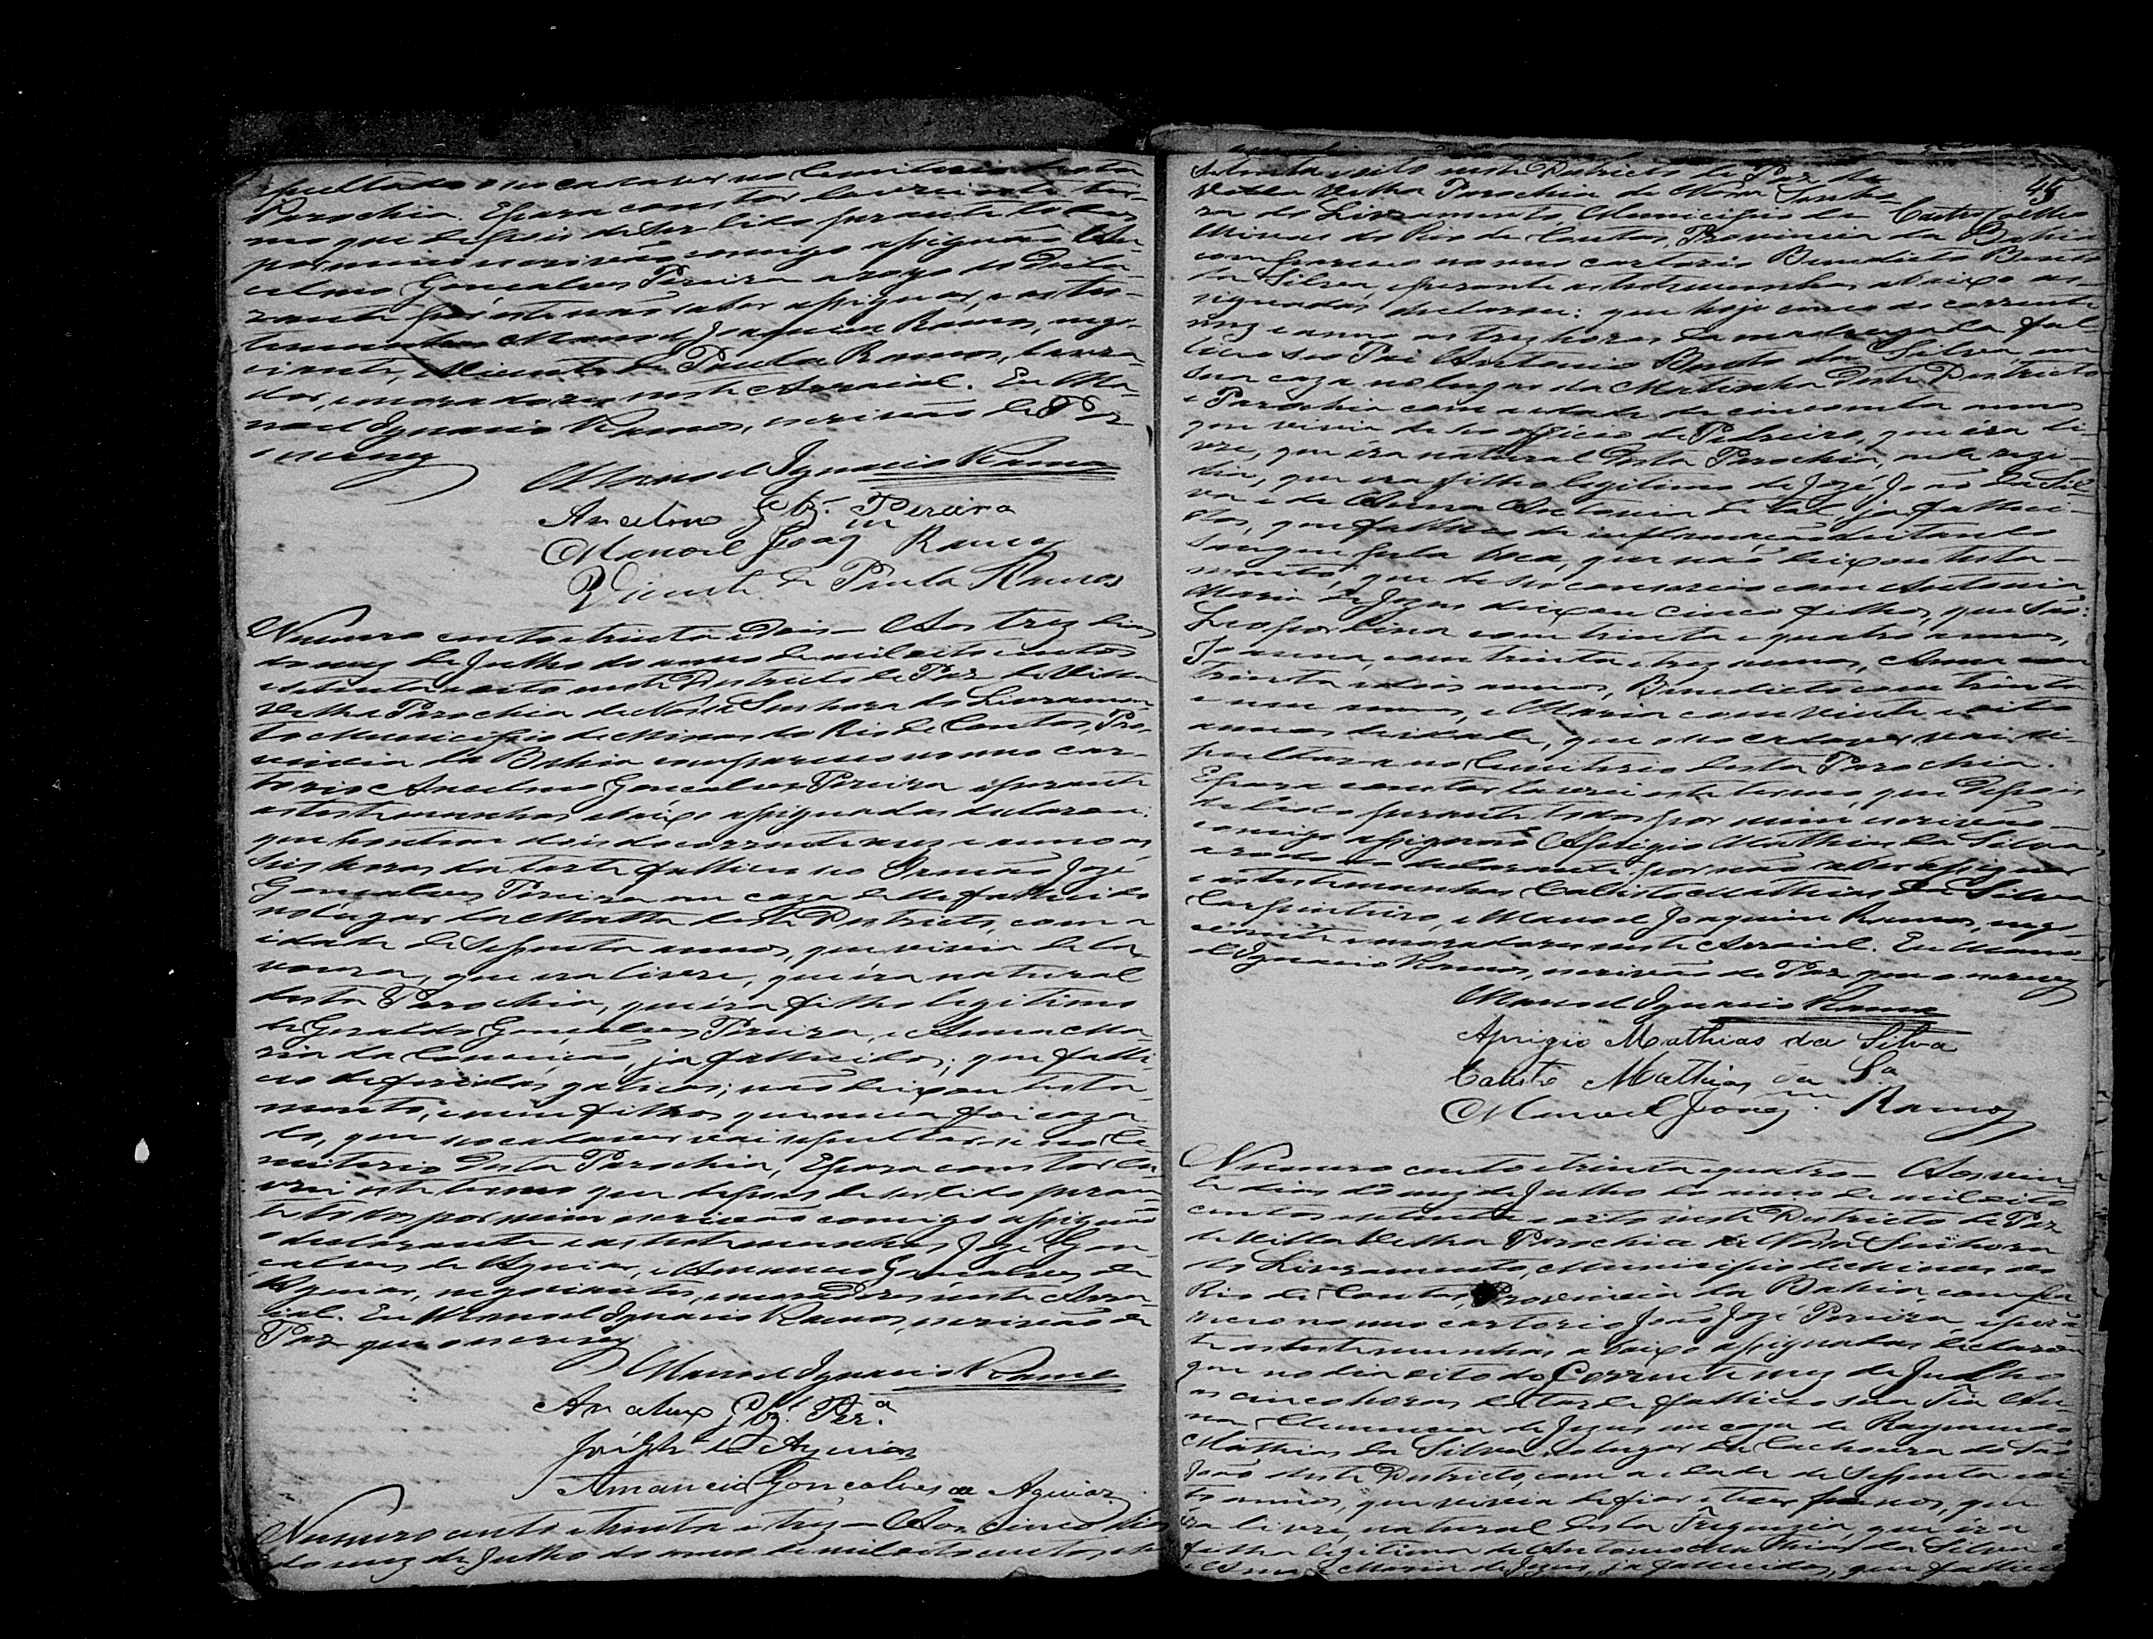 sepultado o seo cadaver no Cemiterio desta
Parochia. E para constar lavrei este ter-
mo que depois de ser lido perante todos
por mim escrivão comigo assignão An-
celmo Gonçalves Pereira a rogo do Decla-
rante por este não saber assignar, e as tes-
temunhas Manoel Joaquim Ramos, nego-
ciante, Vicente de Paula Ramos, lavra-
dor, moradores neste Arraial. Eu Ma-
noel Ignacio Ramos, escrivão de Paz
o escrevy
Manoel Ignacio Ramos
Ancelmo Glz. Pereira
Manoel Joaqm Ramos
Vicente de Paula Ramos
Numero cento e trinta e Dois — Aos trez dias
do mez de Julho do anno de mil oito centos
e setenta e oito neste Districto de Paz de Villa
Velha Parochia de Nossa Senhora do Livramen-
to Municipio de Minas do Rio de Contas, Pro-
vincia da Bahia compareceo no meo car-
torio Ancelmo Gonçalves Pereira e perante
as testemunhas abaixo assignadas declarou:
que hontem dois do corrente mez e anno as
seis horas da tarde falleceo seo Irmão José
Gonçalves Pereira em caza delle fallecido
no lugar da Matta deste Districto, com a
idade de Sessenta annos, que vivia de la
voura, que era livre, que era natural
desta Parochia, que era filho legitimo
de Geraldo Gonçalves Pereira, e Anna Ma-
ria da Conceição, ja fallecidos; que falle-
ceo de feridas galicas; não deixou testa-
mento, e nem filhos que nunca foi caza-
do, que seo cadaver vai sepultar-se no Ce
miterio desta Parochia, E para constar la-
vrei este termo que depois de ser lido peran-
te todos por mim escrivão comigo assignão
o declarante e as testemunhas José Gon-
çalves de Aguiar, e Amancio Gonçalves de
Aguiar, negociantes, moradores neste Arra-
ial. Eu Manoel Ignacio Ramos, escrivão de
Paz que o escrevy
Manoel Ignacio Ramos
Ancelmo Glz. Per.ª
José Glz de Aguiar
Amancio Gonçalves de Aguiar
Numero cento e trinta e trez — Aos cinco dias
do mez de Julho do anno de mil oito centos e
45
setenta e oito neste Districto de Paz de
Villa Velha Parochia de Nossa Senho-
ra do Livramento, Municipio de
Minas do Rio de Contas, Provincia da Bahia
compareceo no meo cartorio Benedicto Bento
da Silva, e perante as testemunhas abaixo as-
signadas, declarou: que hoje cinco do corrente
mez e anno as trez horas da madrugada fal-
leceo seo Pai Antonio Bento da Silva, em
sua caza no lugar da Matinha deste Districto
e Parochia com a idade de cincoenta annos
que vivia de seo officio de Pedreiro, que era li-
vre, que era natural desta Parochia, onde rezi-
dia, que era filho legitimo de José João da Sil-
va e de Anna Antonia de tal ja falleci-
dos, que falleceo de inflamação deitando
Sangue pela boca, que não deixou testa-
mento, que de seo consorcio com Antonia
Maria de Jezus deixou cinco filhos, que são:
Leopordina com trinta e quatro annos,
Joanna, com trinta e trez annos, Anna com
trinta e dois annos, Benedicto com trinta
e um annos, e Maria com vinte e oito
annos de idade, que o seo cadaver vai se-
pultar-se no Cemiterio desta Parochia.
E para constar lavrei este termo, que depois
de lido perante todos por mim escrivão
comigo assignão Aprigio Mathias da Silva
a rogo do declarante por não saber assignar
e as testemunhas Calisto Mathias da Silva
Carpinteiro, e Manoel Joaquim Ramos, nego-
ciante e moradores neste Arraial. Eu Mano-
el Ignacio Ramos, escrivão de Paz que o escrevy
Manoel Ignacio Ramos
Aprigio Mathias da Silva
Calisto Mathias da Sª
Manoel Joaqm. Ramos
Numero cento e trinta e quatro — Aos vin-
te dias do mez de Julho do anno de mil oito
centos e setenta e oito neste Districto de Paz
de Villa Velha Parochia de Nossa Senhora
do Livramento, Municipio de Minas do
Rio de Contas, Provincia da Bahia compa-
receo no meo cartorio João José Pereira, e peran-
te as testemunhas abaixo assignadas declarou
que no dia oito do Corrente mez de Julho
as cinco horas da tarde falleceo sua Tia An-
na Clemencia de Jezus em caza de Raymundo
Mathias da Silva no lugar da Cachoeira do São
João deste Districto, com a idade de Sessenta e oi-
to annos, que vivia de fiar e tecer pannos, que
era livre, natural desta Freguezia, que era
filha legitima de Antonio Mathias da Silva e
Anna Maria de Jezus, ja fallecidos, que falleceo